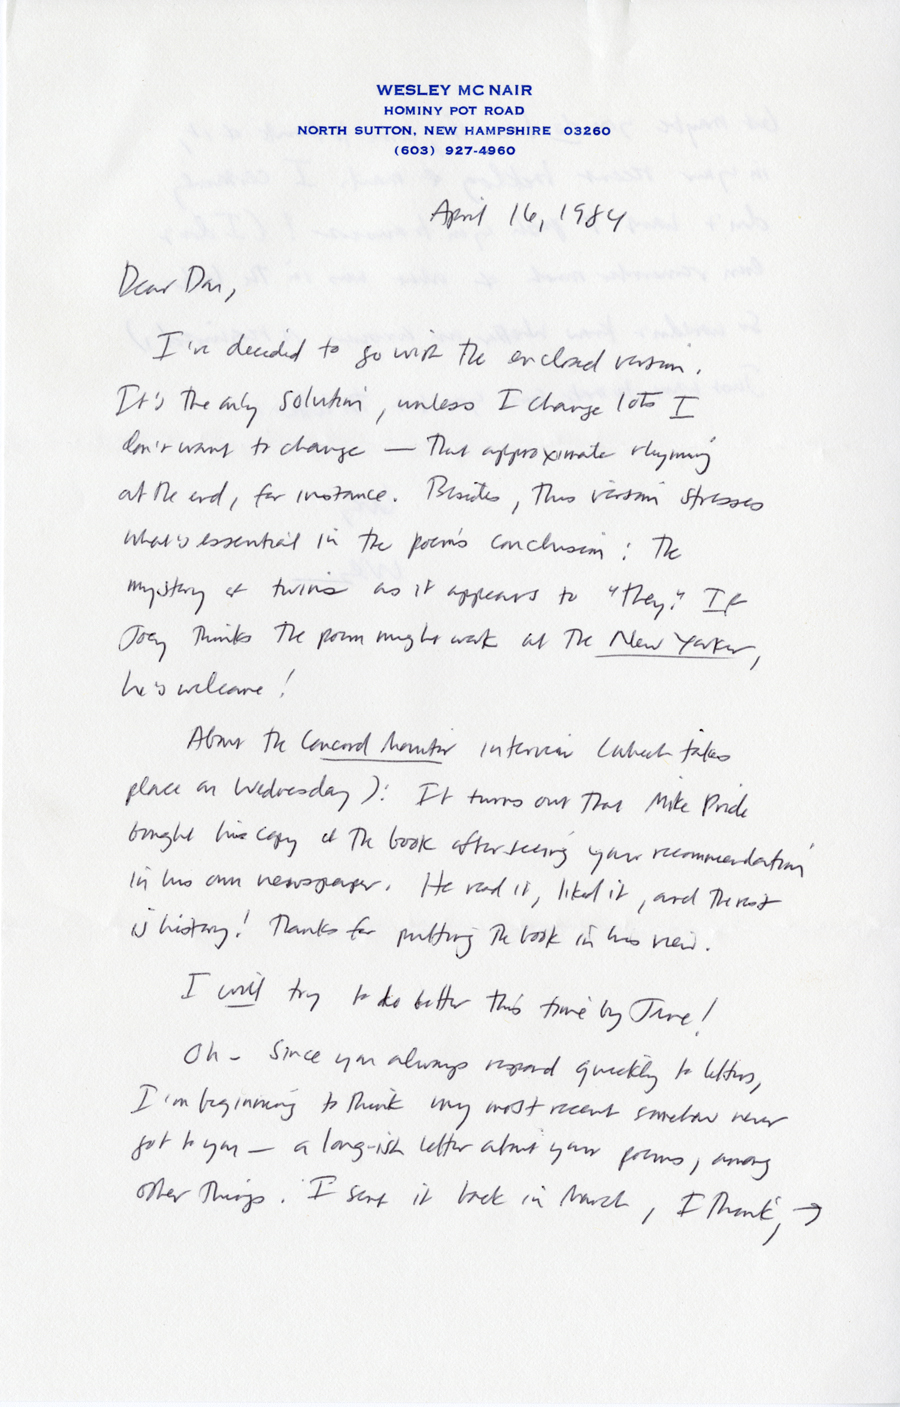 WESLEY MC NAIR
HOMINY POT ROAD
NORTH SUTTON, NEW HAMPSHIRE 03260
(603) 927-4960
April 16, 1984
Dear Don,
I've decided to go with the enclosed version.
It's the only solution, unless I change lots I
don't want to change — that approximate rhyming
at the end, for instance. Besides, this version stresses
what's essential in the poem's conclusion: the
mystery of twins as it appears to "they." If
Joey thinks the poem might work at the New Yorker,
he's welcome!
About the Concord Monitor interview (which takes
place on Wednesday): It turns out that Mike Pride
bought his copy of the book after seeing your recommendation
in his own newspaper. He read it, liked it, and the rest
is history! Thanks for putting the book in his view.
I will try to do better this time by June!
Oh - Since you always respond quickly to letters,
I'm beginning to think my most recent somehow never
got to you — a long-ish letter about your poems, among
other things. I sent it back in March, I think, →